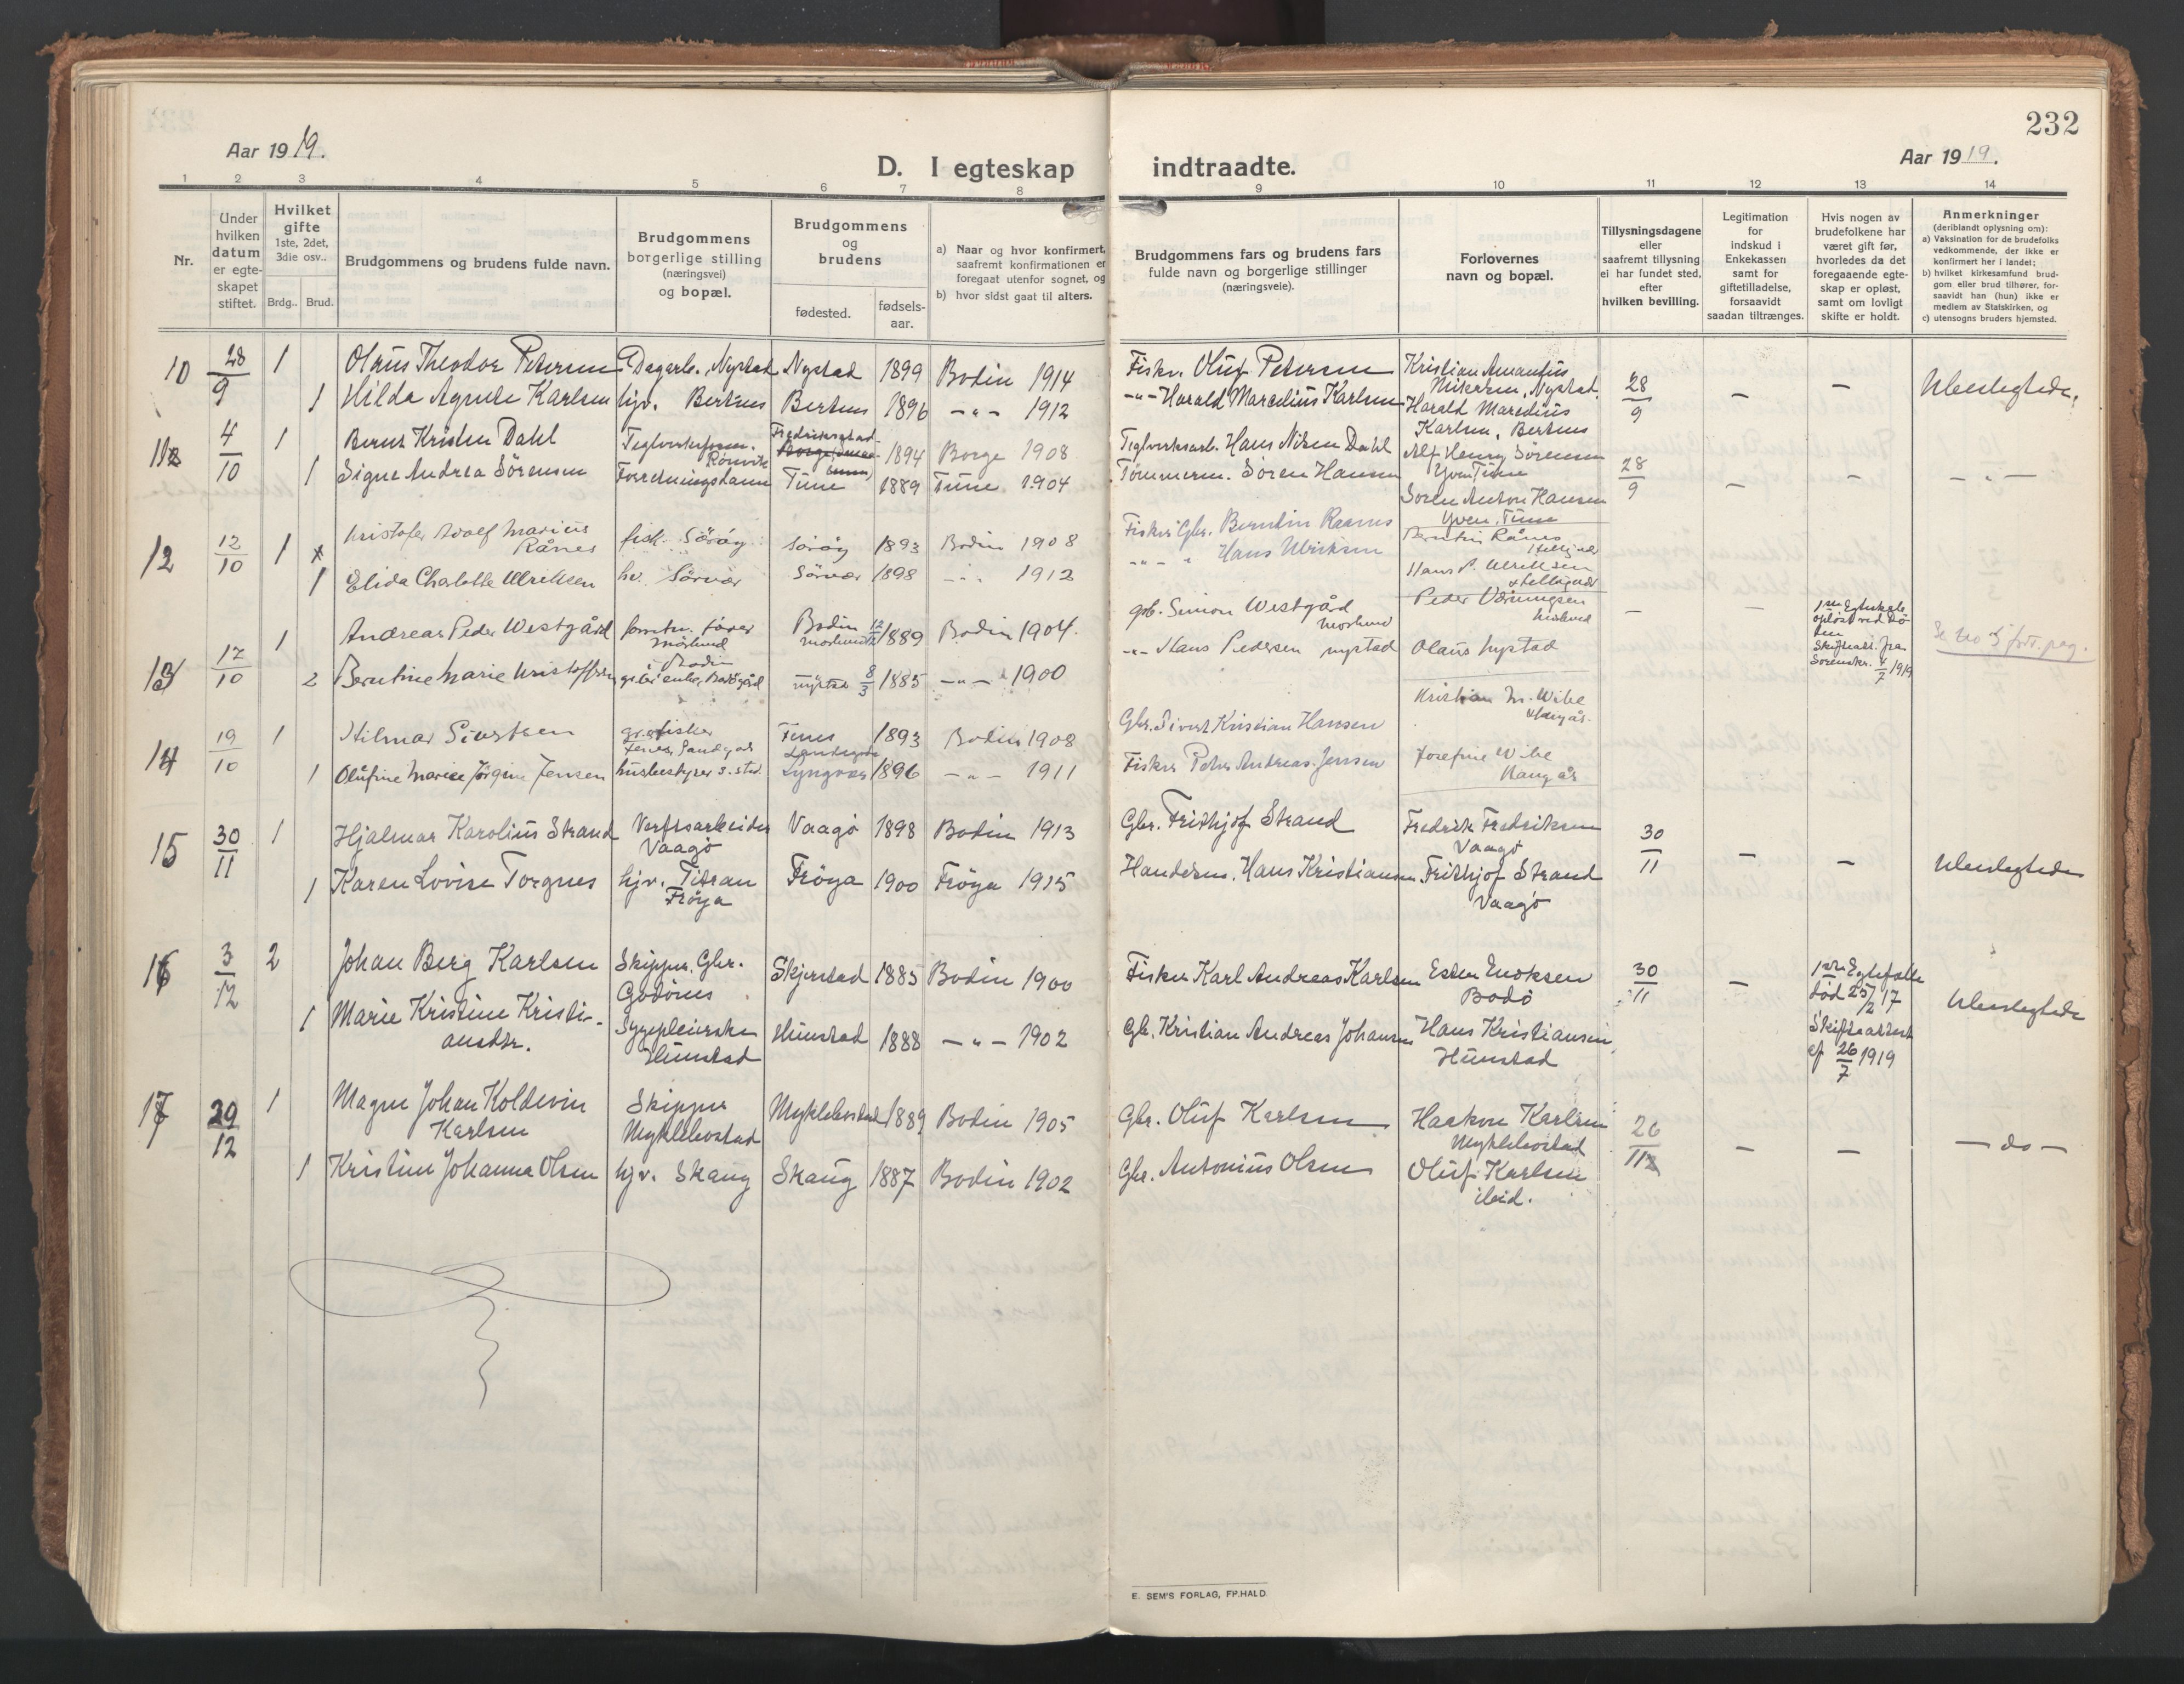 232
Aar 1919.
D. I egteskap
indtraadte.
Aar 1919.
1 2 3 4 5 6 7 8 9 10 11 12 13 14
Nr.
Under
hvilken
datum
er egte-
skapet
stiftet.
Hvilket
gifte
1ste, 2det,
3die osv..
Brdg.. Brud.
Brudgommens og brudens fulde navn.
Brudgommens
borgerlige stilling
(næringsvei)
og bopæl.
Brudgommens
og
brudens
fødested.
fødsels-
aar.
a) Naar og hvor konfirmert,
saafremt konfirmationen er
foregaat utenfor sognet, og
b) hvor sidst gaat til alters.
Brudgommens fars og brudens fars
fulde navn og borgerlige stillinger
(næringsveie).
Forlovernes
navn og bopæl.
Tillysningsdagene
eller
saafremt tillysning
ei har fundet sted,
efter
hvilken bevilling.
Legitimation
for
indskud i
Enkekassen
samt for
giftetilladelse,
forsaavidt
saadan tiltrænges.
Hvis nogen av
brudefolkene har
været gift før,
hvorledes da det
foregaaende egte-
skap er opløst,
samt om lovligt
skifte er holdt.
Anmerkninger
(deriblandt oplysning om):
a) Vaksination for de brudefolks
vedkommende, der ikke er
konfirmert her i landet;
b) hvilket kirkesamfund brud-
gom eller brud tilhører, for-
saavidt han (hun) ikke er
medlem av Statskirken, og
c) utensogns bruders hjemsted.
10 28/9 1 Olaus Theodor Petersen Dagarb., Nystad Nystad 1899 Bodin 1914 Fisker. Oluf Petersen Kristian Amandus
Mikalsen, Nystad.
28/9 — — Ubeslegtede.
1 Hilda Agnete Karlsen hjv. Bertnes Bertnes 1896 -"- 1912 -"- Harald Marcelius Karlsen Harald Marcelius
Karlsen, Bertnes
11 4/10 1 Bernt Kristen Dahl Teglverksform.
Rønvik Fredriksstad 1894 Borge 1908 Teglverksarb. Hans Nilsen Dahl Alf Henry Sörensen
Yven Tune
28/9 — — -"-
1 Signe Andrea Sörensen Forretningsdame Tune 1889 Tune 1904 Tømmerm. Sören Hansen Sören Anton Hansen
Yven, Tune
12 12/10 1 Kristofer Adolf Marius
Rånes fisk. Söröy Söröy 1893 Bodin 1908 Fisker Gbr. Berntin Raanes Berntin Rånes
1 Elida Charlotte Ulriksen hv. Sörvær Sörvær 1898 -"- 1912 -"- Hans Ulriksen Hans P. Ulriksen
13 12/10 1 Andreas Peder Westgård Mörkved Bodin
Mörkved 12/12 1889 Bodin 1904. gbr. Simon Westgård
Mörkved Peder
Mörkved — — 1ste Egteskab
opløst ved Dö-
den
Skifteatt. fra
Sorenskr. 4/7 1919
Se No 5 forr. pag.
2 Berntine Marie Kristoffersen Bodin
gbr enke, Bodøgård Nystad 8/3 1885 -"- 1900 -"- Hans Pedersen Nystad Olaus Nystad
14 19/10 1 Hilmar Sivertsen fisker
Fenes, Landego Fenes
Landego 1893 Bodin 1908 Gbr. Sivert Kristian Hansen Kristian M. Wibe
1 Olufine Marie Jörgine Jensen husbestyrer s. sted Lyngvær 1896 -"- 1911 Fisker Peder Andreas Jensen Josefine Wibe
15 30/11 1 Hjalmar Karolius Strand Verftsarbeider
Vaagö Vaagö 1898 Bodin 1913 Gbr. Frithjof Strand Fredrik Fredriksen
Vaagö
30/11 — — Ubeslegtede
1 Karen Lovise Torgnes hjv. Titran
Fröya Fröya 1900 Fröya 1915 Handelsm. Hans Kristiansen Frithjof Strand
Vaagö
16 3/12 2 Johan Berg Karlsen Skipper, Gbr.
Godönes Skjerstad 1885 Bodin 1900 Fisker Karl Andreas Karlsen Esten Enoksen
Bodö
30/11 — 1ste Egtefælle
död 25/2 17
Skifteattest
af 26/7 1919
Ubeslegtede
1 Marie Kristine Kristi-
ansdtr. Sygepleierske
Hunstad Hunstad 1888 -"- 1902 Gb. Kristian Andreas Johansen Hans Kristiansen
Hunstad
17 29/12 1 Magne Johan Koldevin
Karlsen Skipper
Myklebostad Myklebostad 1889 Bodin 1905 Gbr. Oluf Karlsen Haakon Karlsen
Myklebostad
26/11 — — — do —
1 Kristine Johanna Olsen hjv. Skaug Skaug 1887 Bodin 1902 Gbr. Antonius Olsen Oluf Karlsen
ibid.
E. SEM'S FORLAG, FR.HALD